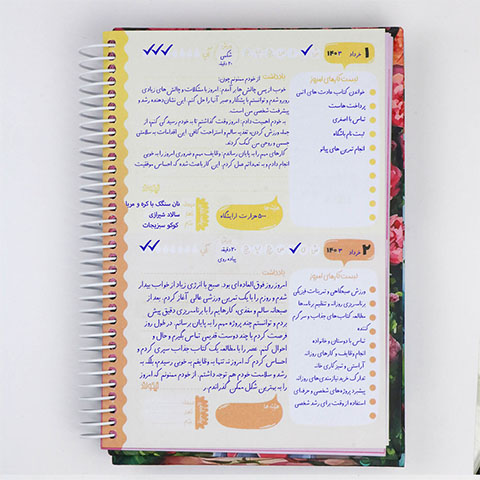 ۱ خرداد ۱۴۰۳
لیست کارهای امروز
خواندن کتاب عادت های اتمی
پرداخت هاست
تماس با اصغری
ثبت نام باشگاه
انجام تمرین های پیانو
تنکس
۲۰ دقیقه
یادداشت
از خودم ممنونم چون:
خوب از پس چالش ها بر آمدم. امروز با مشکلات و چالش های زیادی
روبرو شدم و توانستم با پشتکار و صبر آنها را حل کنم. این نشان دهنده رشد و
پیشرفت شخصی من است.
به خودم اهمیت دادم. امروز وقت گذاشتم تا به خودم رسیدگی کنم، از
جمله ورزش کردن، تغذیه سالم و استراحت کافی. این اقدامات به سلامتی
جسمی و روحی من کمک کردند.
کارهای مهم را به پایان رساندم. وظایف مهم و ضروری امروز را به خوبی
انجام دادم و به تعهداتم عمل کردم. این کار باعث شده که احساس موفقیت
۵۰۰ هزار ت آرایشگاه
نان سنگک با کره و مربا
سالاد شیرازی
کوکو سبزیجات
۲ خرداد ۱۴۰۳
لیست کارهای امروز
ورزش صبحگاهی و تمرینات فیزیکی
برنامه ریزی روزانه و تنظیم برنامه ها
مطالعه کتاب های جذاب و سرگرم
کننده
تماس با دوستان و خانواده
انجام وظایف و کارهای روزانه
آراستن و تمیزکاری خانه
تدارک خرید نیازمندی های روزانه
پیشبرد پروژه های شخصی و حرفه ای
استفاده از وقت برای رشد شخصی
۲۰ دقیقه
پیاده روی
یادداشت
امروز روز فوق العاده ای بود. صبح با انرژی زیاد از خواب بیدار
شدم و روزم را با یک تمرین ورزشی عالی آغاز کردم. بعد از
صبحانه سالم و مغذی، کارهایم را با برنامه ریزی دقیق پیش
بردم و توانستم چند پروژه مهم را به پایان برسانم. در طول روز
فرصت کردم با چند دوست قدیمی تماس بگیرم و حال و
احوال کنم. عصر را با مطالعه یک کتاب جذاب سپری کردم و
احساس کردم که امروز نه تنها به وظایفم به خوبی رسیدم، بلکه به
رشد و سلامت خودم هم توجه داشتم. از خودم ممنونم که امروز
را به بهترین شکل ممکن گذراندم.